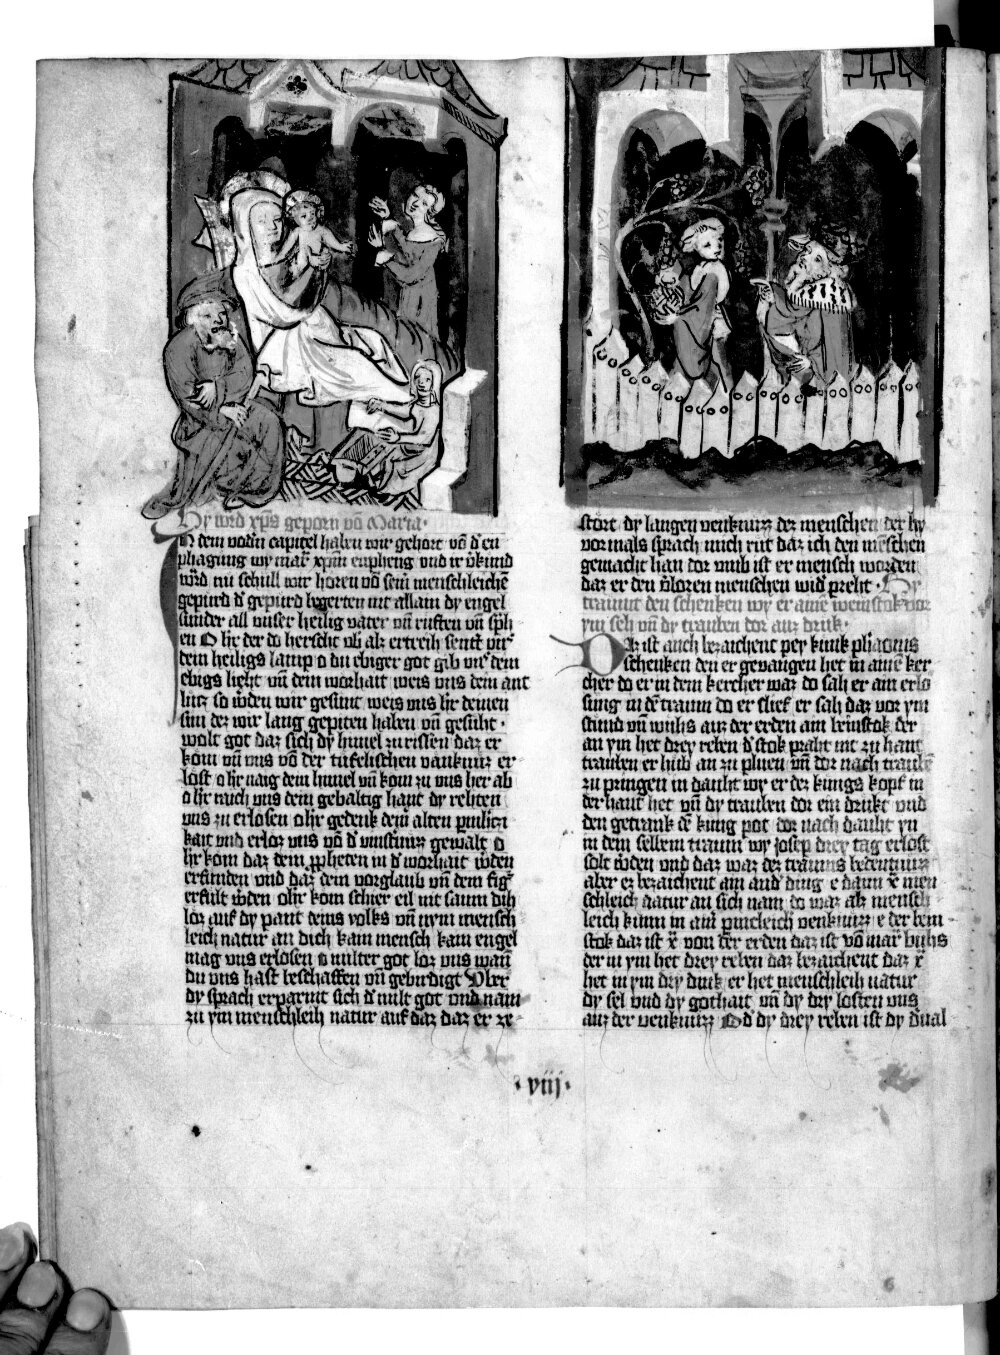 Hy wird xp̄s geporn vō Maria·
In dem vod'n capitel haben wir gehort vō d' en
phagung wy mar' xpm̄ enpheng vnd ir v'kund
w'd nu schull wir horen vō sein menschleichē
gepurd d' gepurd begerten nit allain dy engel
sunder all vnser heilig vater vn̄ ruften vn̄ sp̄ch
en O h're der do herscht vb' alz ertreih sentt vns'
dem heiligs lamp o du ebiger got gib vns' dem
ebigs lieht vn̄ dem worhait weis vns dein ant
lutz so w'den wir gesunt weis vns h're deinen
sun dez wir lang gepiten haben vn̄ gesuht·
wolt got daz sich dy himel zurissen daz er
kom vn̄ vns vō der tufelischen vankmuz er
lost o h're naig dein himel vn̄ kom zu vns her ab
o h're rauch vns dein gebaltig hant dy rehten
vns zu erlosen o h're gedenk dein alten p̄milicz
kait vnd erloz vns vō d' vinstnuz gewalt o
h're kom daz dein p̄pheten in d' worhait w'den
erfunden vnd daz dem vorglaub vn̄ dem fig'
erfult w'den o h're kom schier eil nit saum dih
loz auf dy pant deins volks vn̄ nym mensch
leich natur an dich kain mensch kain engel
mag vns erlosen o milter got loz vns wan̄
du vns hast beschaffen vn̄ gebirdigt Vber
dy sprach erparmt sich d' milt got vnd nam
zu ym menschleih natur auf daz daz er ze
stort dy langen venknuzz dez menschen der hy
vormals sprach mich rut daz ich den menschen
gemacht han dor vmb ist er mensch worden
daz er den v'loren menschen wid' preht· Hy
traumt den schenken wy er aine weinstok vor
ym seh vn̄ dy trauben dor auz druk·
Daz ist auch bezaichent per kunk pharaonis
schenken den er geuangen het in aine ker
cher do er in dem kercher waz do sah er ain erlo
sung in de traum do er slief er sah daz vor ym
stund vn̄ wuhs auz der erden ain beinstok der
an ym het drey reben d' stok praht nit zu hant
trauben er hub an zu pluen vn̄ dor nach traubē
zu pringen in dauht wy er dez kungs kopf in
der hant het vn̄ dy trauben dor ein drukt vnd
den getrank de kung pot dor nach dauht yn
in dem selbem traum wy Josep drey tag erlost
solt w'den vnd daz waz dez traums bedeutnuzz
aber ez bezaichent ain and' ding e dann xp̄ men
schleich natur an sich nam do waz alz mensch
leich kunn in ainr pmcleich venknuzz e der bein
stok daz ist xp̄ von der erden daz ist vō mar' wuhs
der in ym het drey reben daz bezaichent daz xp̄
het in ym dry dink er het menschleih natur
dy sel vnd dy gothait vn̄ dy dry losten vns
auz der venknuzz Od' dy drey reben ist dy dryual
·viij·
6